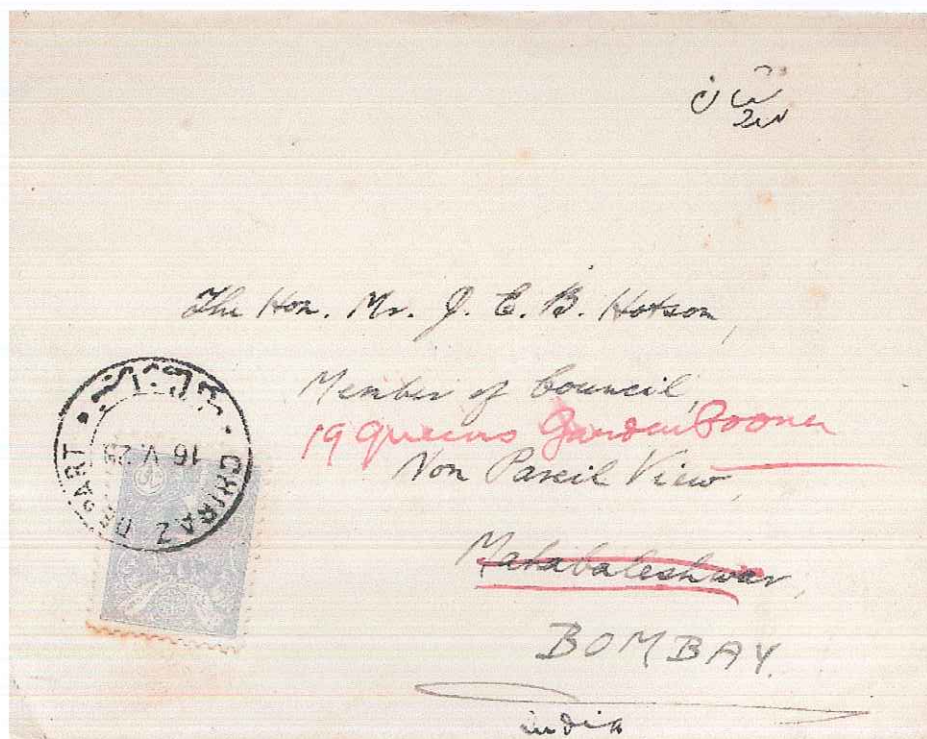 The Hon. Mr. J. E. B. Hotson,
Member of Council,
19 Queens Garden Poona
Non Pareil View,
Mahabaleshwar,
BOMBAY.
india
CHIRAZ DEPART
16 V. 29